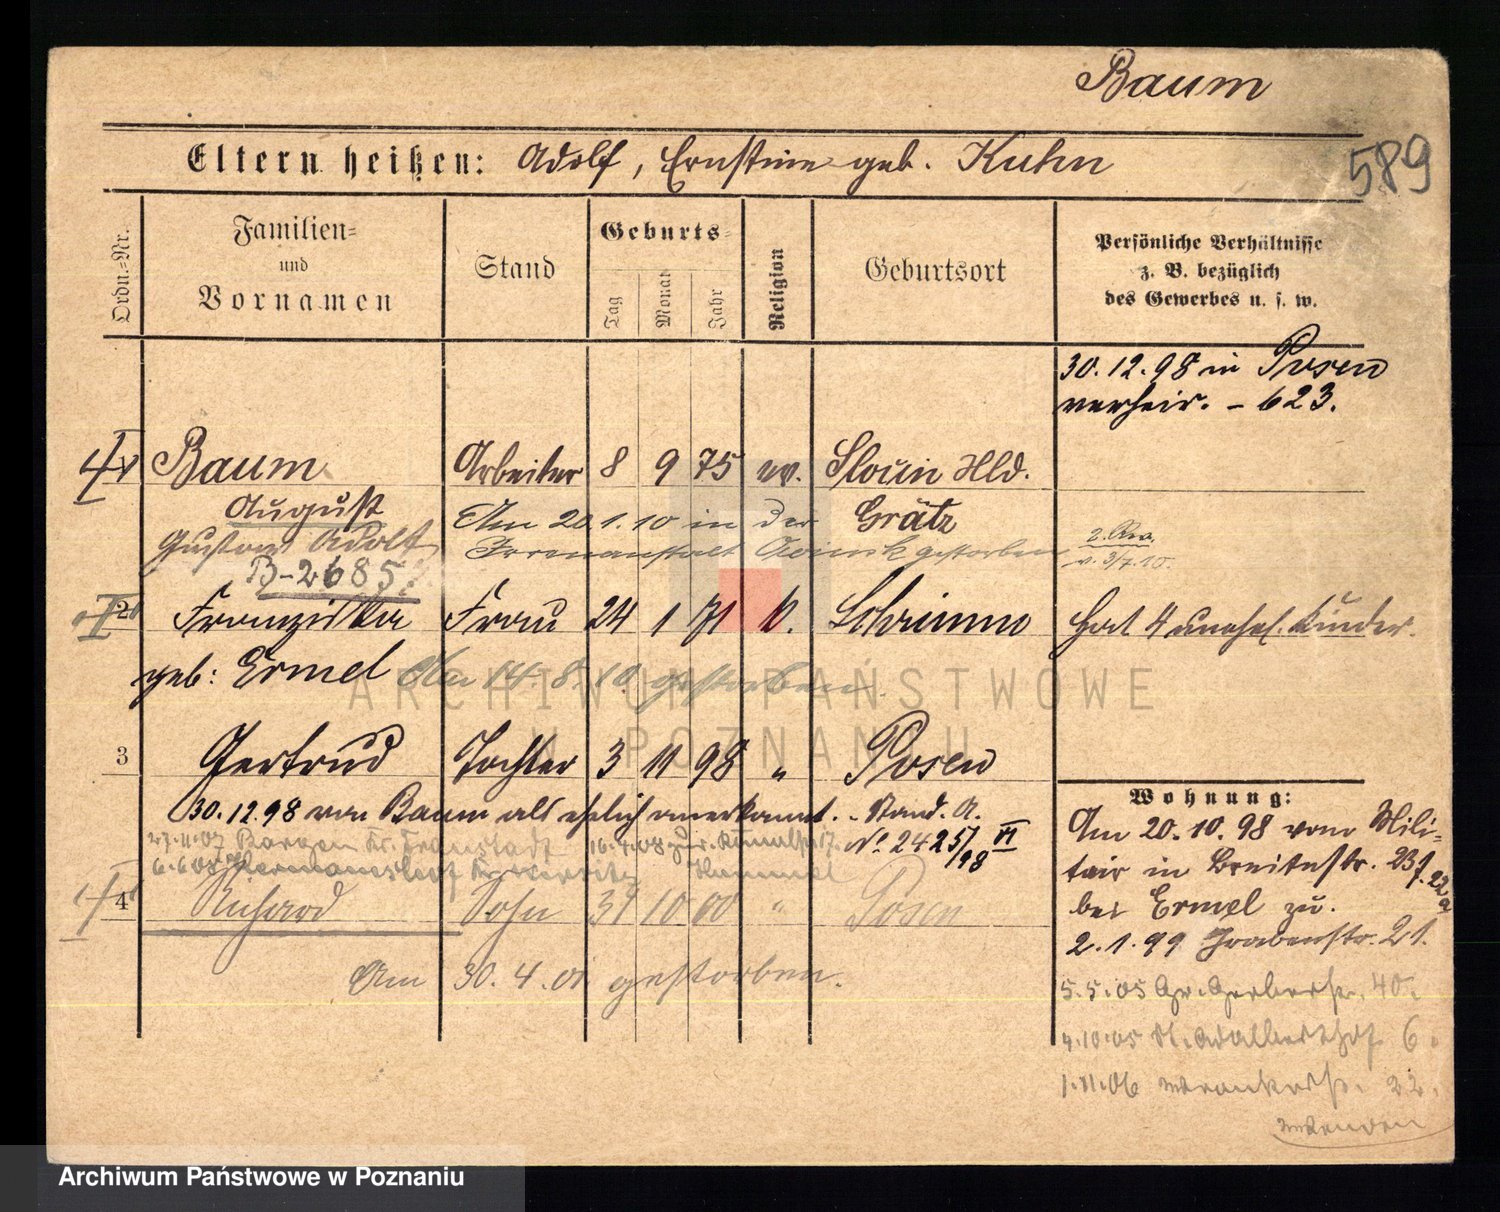 Baum
589
Eltern heißen: Adolf, Ernstine geb. Kuhn
Ordn.-Nr.
Familien- und Vornamen
Stand
Geburts-
Tag
Monat
Jahr
Religion
Geburtsort
Persönliche Verhältnisse
z. B. bezüglich
des Gewerbes u. s. w.
30.12.98 in Posen
verheir. – 623.
Baum Arbeiter 8 9 75 ev. Hld.
August
Am 20.1.10 in der Grätz
Gustav Adolf
Irrenanstalt Owinsk gestorben
v. 3/7.10.
B-2685
2 Franziska Frau 24 1 71 k. Schrimm Hat 4 unehel. Kinder.
geb: Ermel Am 14.8.10. gestorben.
3 Gertrud Tochter 3 11 98 " Posen
30.12.98 von Baum als ehelich anerkannt. – Stand. A.
No. 2425/98 VI
27.11.07 Kr. Fraustadt 16.4.08
6.6.08
4 Richard Sohn 31 10 00 " Posen
Am 30.4.01 gestorben.
Wohnung:
Am 20.10.98 vom Mili-
tair in Breitestr. 23
bei Ermel zu.
2.1.99 Grabenstr. 21.
5.5.05 Gr. Gerberstr. 40.
4.10.05 St. Adalberthof 6.
1.11.06 22.
ARCHIWUM PAŃSTWOWE
W POZNANIU
Archiwum Państwowe w Poznaniu